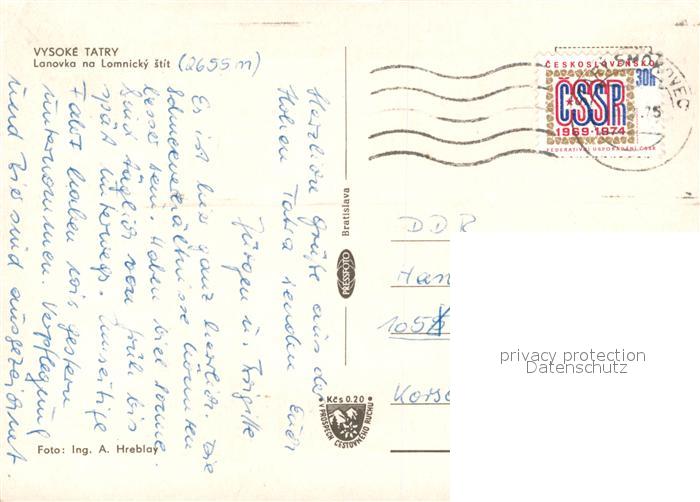 VYSOKÉ TATRY
Lanovka na Lomnický štít (2655 m)
Herzliche Grüße aus der
Hohen Tatra senden Euch
Jürgen u. Brigitte
Es ist hier ganz herrlich. Die
Schneeverhältnisse könnten
besser sein. Haben viel Sonne.
Sind täglich von früh bis
spät unterwegs.
Fahrt haben wir gestern
unternommen. Verpflegung
und Bier sind ausgezeichnet
Foto: Ing. A. Hreblay
PRESSFOTO
Bratislava
Kčs 0.20
V PROSPECH CESTOVNÉHO RUCHU
ČESKOSLOVENSKO
30h
ČSSR
1969-1974
FEDERATIVNÍ USPOŘÁDÁNÍ ČSSR
75
DDR
Han
1055
Korso
privacy protection
Datenschutz